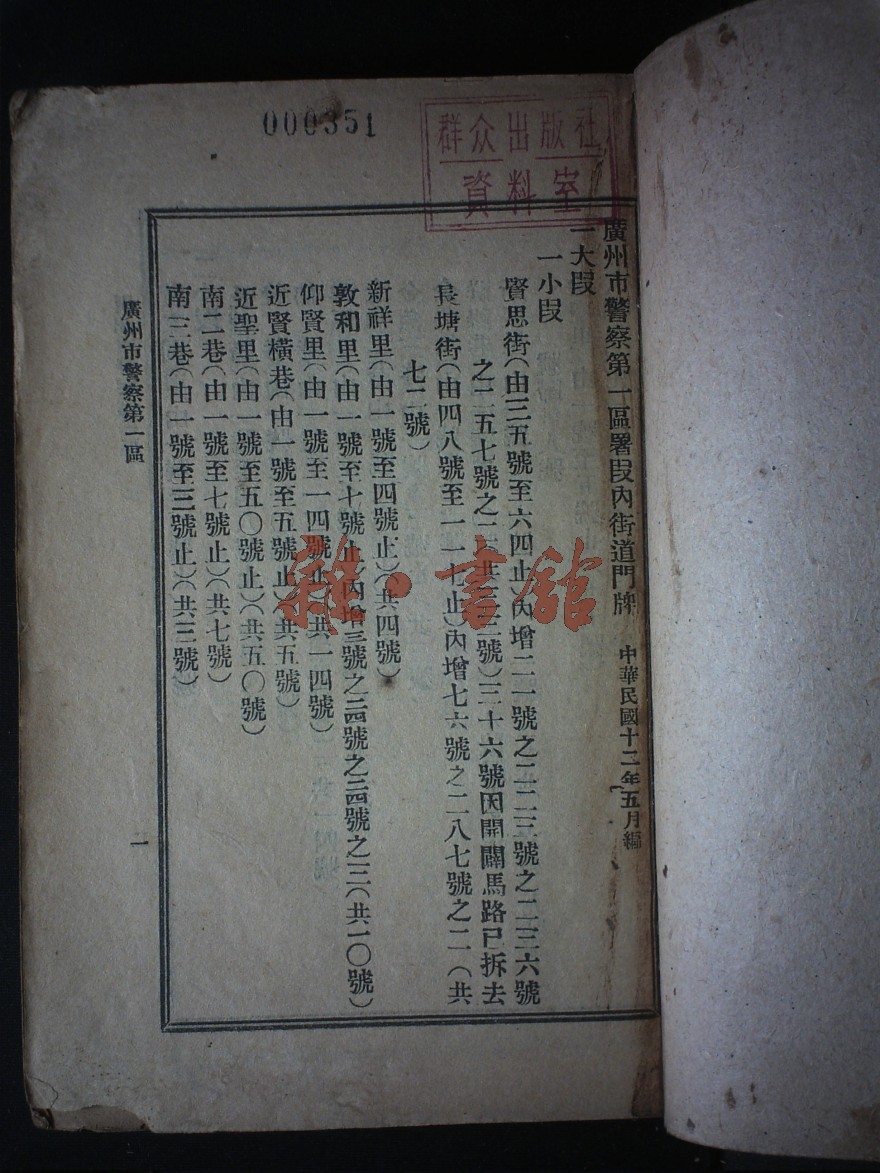 000351
群众出版社
資料室
廣州市警察第一區署段內街道門牌 中華民國十二年五月編
一大段
一小段
賢思街(由三五號至六四止)內增二一號之二二三號之二三六號
之二五七號之二共三三號)三十六號因開闢馬路已拆去
長塘街(由四八號至一一七止)內增七六號之二八七號之二(共
七二號)
新祥里(由一號至四號止)(共四號)
敦和里(由一號至七號止)內增三號之二四號之二四號之三(共一〇號)
仰賢里(由一號至一四號止)(共一四號)
近賢橫巷(由一號至五號止)(共五號)
近聖里(由一號至五〇號止)(共五〇號)
南二巷(由一號至七號止)(共七號)
南三巷(由一號至三號止)(共三號)
廣州市警察第一區
一
雜·書館